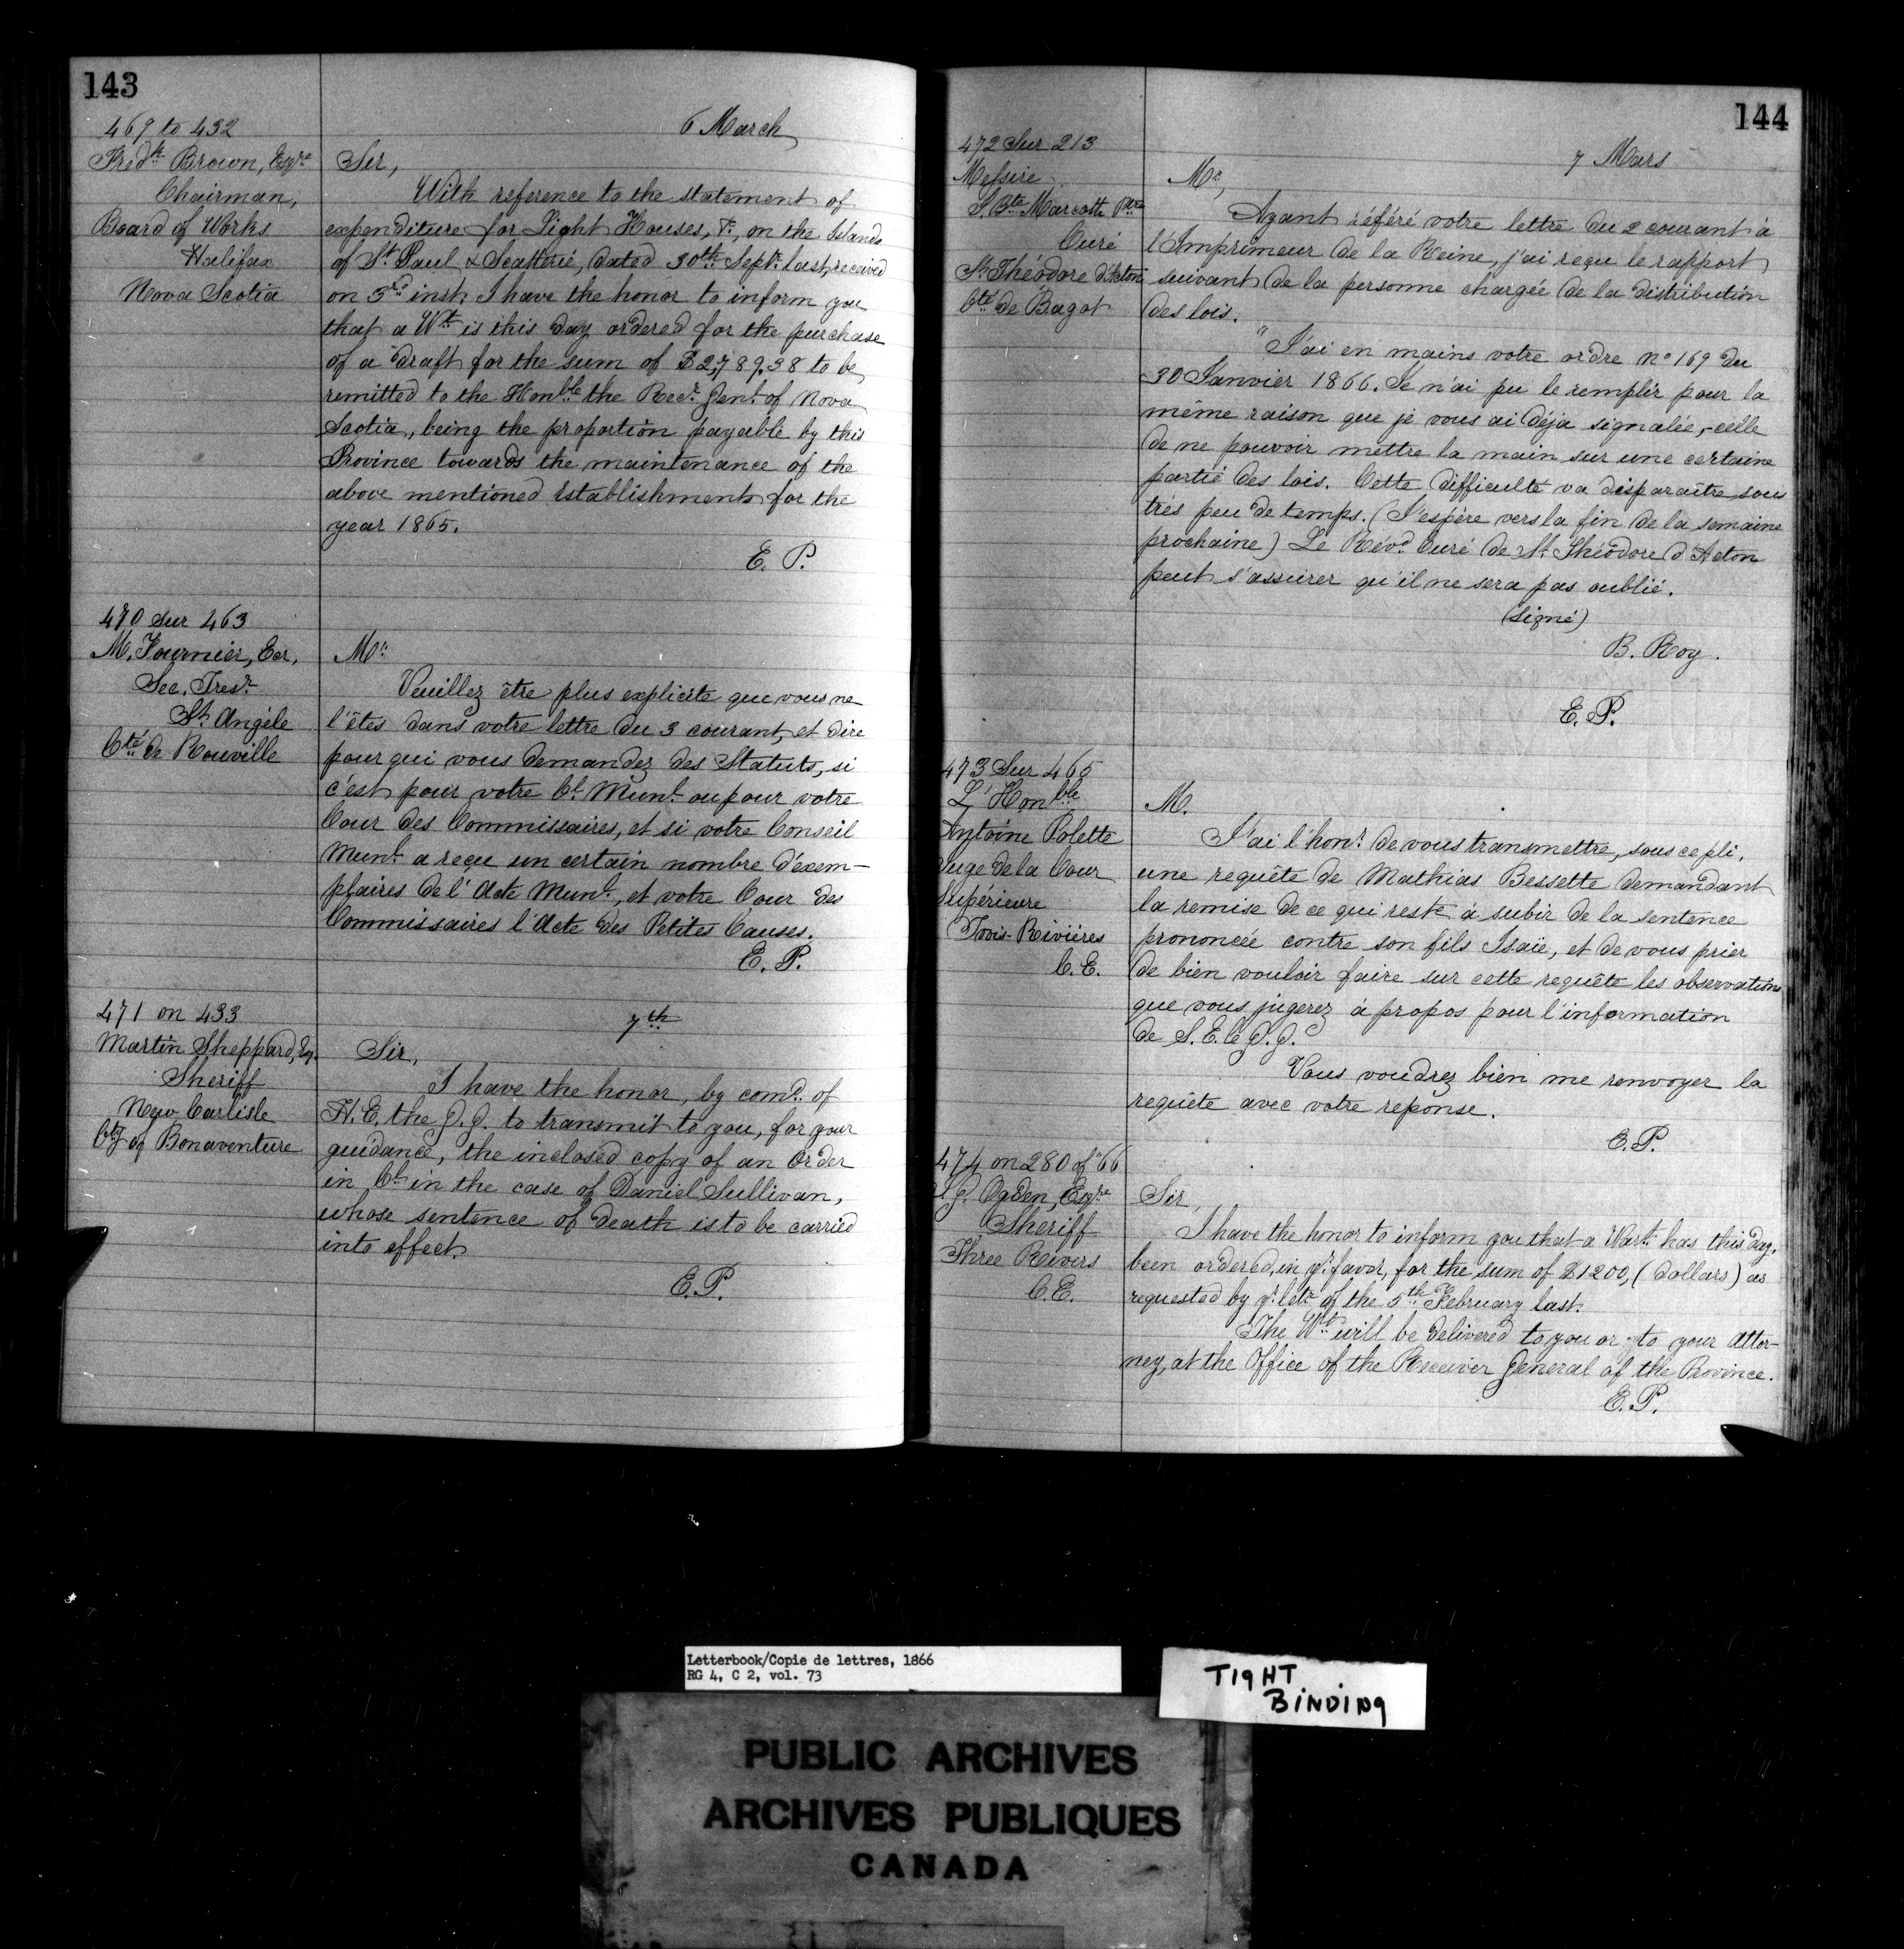 143
6 March
469 to 432
Fredk Brown, Esqre
Chairman,
Board of Works
Halifax
Nova Scotia
Sir,
With reference to the statement of
expenditure for Light Houses, &c, on the Islands
of St Paul & Scatterié, dated 30th Septr last, received
on 3rd inst. I have the honor to inform you
that a Wt is this day ordered for the purchase
of a draft for the sum of $2,789.38 to be
remitted to the Honble the Recr Genl of Nova
Scotia, being the proportion payable by this
Province towards the maintenance of the
above mentioned establishments for the
year 1865.
E. P.
470 sur 463
M. Fournier, Ecr,
Sec. Tresr
St Angèle
Cté de Rouville
Mr
Veuillez être plus explicite que vous ne
l'êtes dans votre lettre du 3 courant, et dire
pour qui vous demandez des Statuts, si
c'est pour votre Cl Munl ou pour votre
Cour des Commissaires, et si votre Conseil
Munl a reçu un certain nombre d'exem-
plaires de l'Acte Munl, et votre Cour des
Commissaires l'Acte des Petites Causes.
E. P.
7th
471 on 433
Martin Sheppard, Esq.
Sheriff
New Carlisle
Cty of Bonaventure
Sir,
I have the honor, by comd of
H. E. the G. G. to transmit to you, for your
guidance, the inclosed copy of an Order
in Cl in the case of Daniel Sullivan,
whose sentence of death is to be carried
into effect.
E. P.
144
7 Mars
472 Sur 213
Messire
J. Bte Marcotte Ptre
Curé
St Théodore d'Acton
Cté de Bagot
Mr,
Ayant référé votre lettre du 2 courant à
l'Imprimeur de la Reine, j'ai reçu le rapport
suivant de la personne chargée de la distribution
des lois.
"J'ai en mains votre ordre no 169 du
30 Janvier 1866. Je n'ai pu le remplir pour la
même raison que je vous ai déja signalée, - celle
de ne pouvoir mettre la main sur une certaine
partie des lois. Cette difficulté va disparaître sous
très peu de temps. (J'espère vers la fin de la semaine
prochaine) Le Révd Curé de St Théodore d'Acton
peut s'assurer qu'il ne sera pas oublié.
(signé)
B. Roy.
E. P.
473 Sur 465
L'Honble
Antoine Polette
Juge de la Cour
Supérieure
Trois-Rivières
C. E.
M.
J'ai l'honr de vous transmettre, sous ce pli,
une requête de Mathias Bessette demandant
la remise de ce qui reste à subir de la sentence
prononcée contre son fils Isaïe, et de vous prier
de bien vouloir faire sur cette requête les observations
que vous jugerez à propos pour l'information
de S. E. le G. G.
Vous voudrez bien me renvoyer la
requête avec votre reponse.
E. P.
474 on 280 of '66
G. Ogden, Esqre
Sheriff
Three Rivers
C. E.
Sir,
I have the honor to inform you that a Wart has this day,
been ordered, in yr favor, for the sum of $1200, (dollars) as
requested by yr letr of the 5th February last.
The Wt will be delivered to you or to your Attor-
ney, at the Office of the Receiver General of the Province.
E. P.
Letterbook/Copie de lettres, 1866
RG 4, C 2, vol. 73
TIGHT
BINDING
PUBLIC ARCHIVES
ARCHIVES PUBLIQUES
CANADA